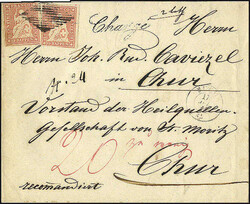 Charge Herrn
Herrn Joh. Rud. Caviezel
in
No. 24 Chur
Vorstand der Heilquellen
Gesellschaft von St. Moritz
20
Chur
recomandirt